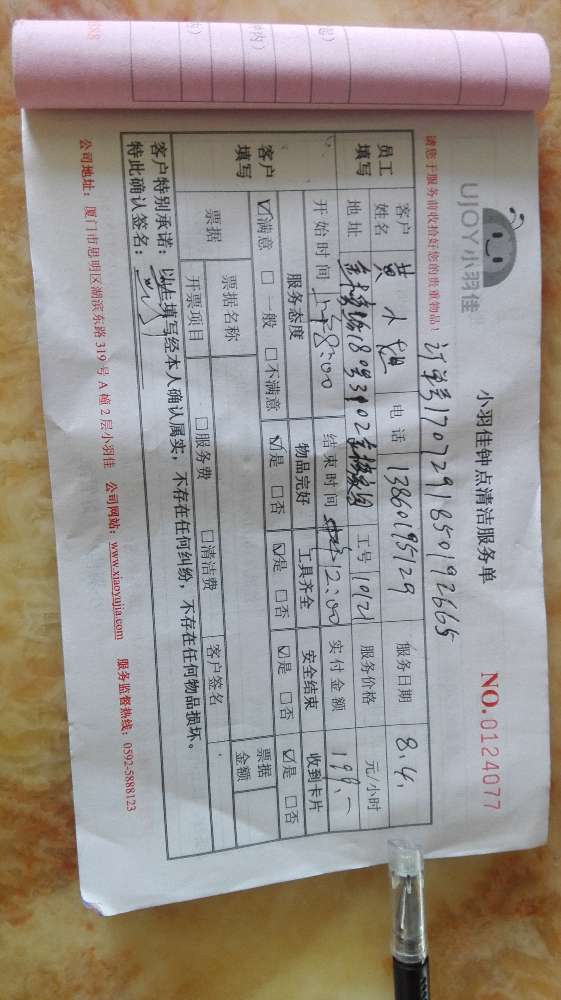 UJOY小羽佳
小羽佳钟点清洁服务单
NO.0124077
请您于服务前收拾好您的贵重物品！
订单号170729185019 2665
员工填写
客户姓名 黄小姐 电话 13860195129 服务日期 8.4.
地址 18号3902 工号 10121 服务价格 元/小时
开始时间 上午8:00 结束时间 12:00 实付金额 199.-
客户填写
服务态度 物品完好 工具齐全 安全结束 收到卡片
☑满意 □一般 □不满意 ☑是 □否 ☑是 □否 ☑是 □否 ☑是 □否
票据 票据名称 票据金额
开票项目 □服务费 □清洁费 客户签名
客户特别承诺：以上填写经本人确认属实，不存在任何纠纷，不存在任何物品损坏。
特此确认签名：
公司地址：厦门市思明区湖滨东路319号A幢2层小羽佳 公司网站：www.xiaoyujia.com 服务监督热线：0592-5888123